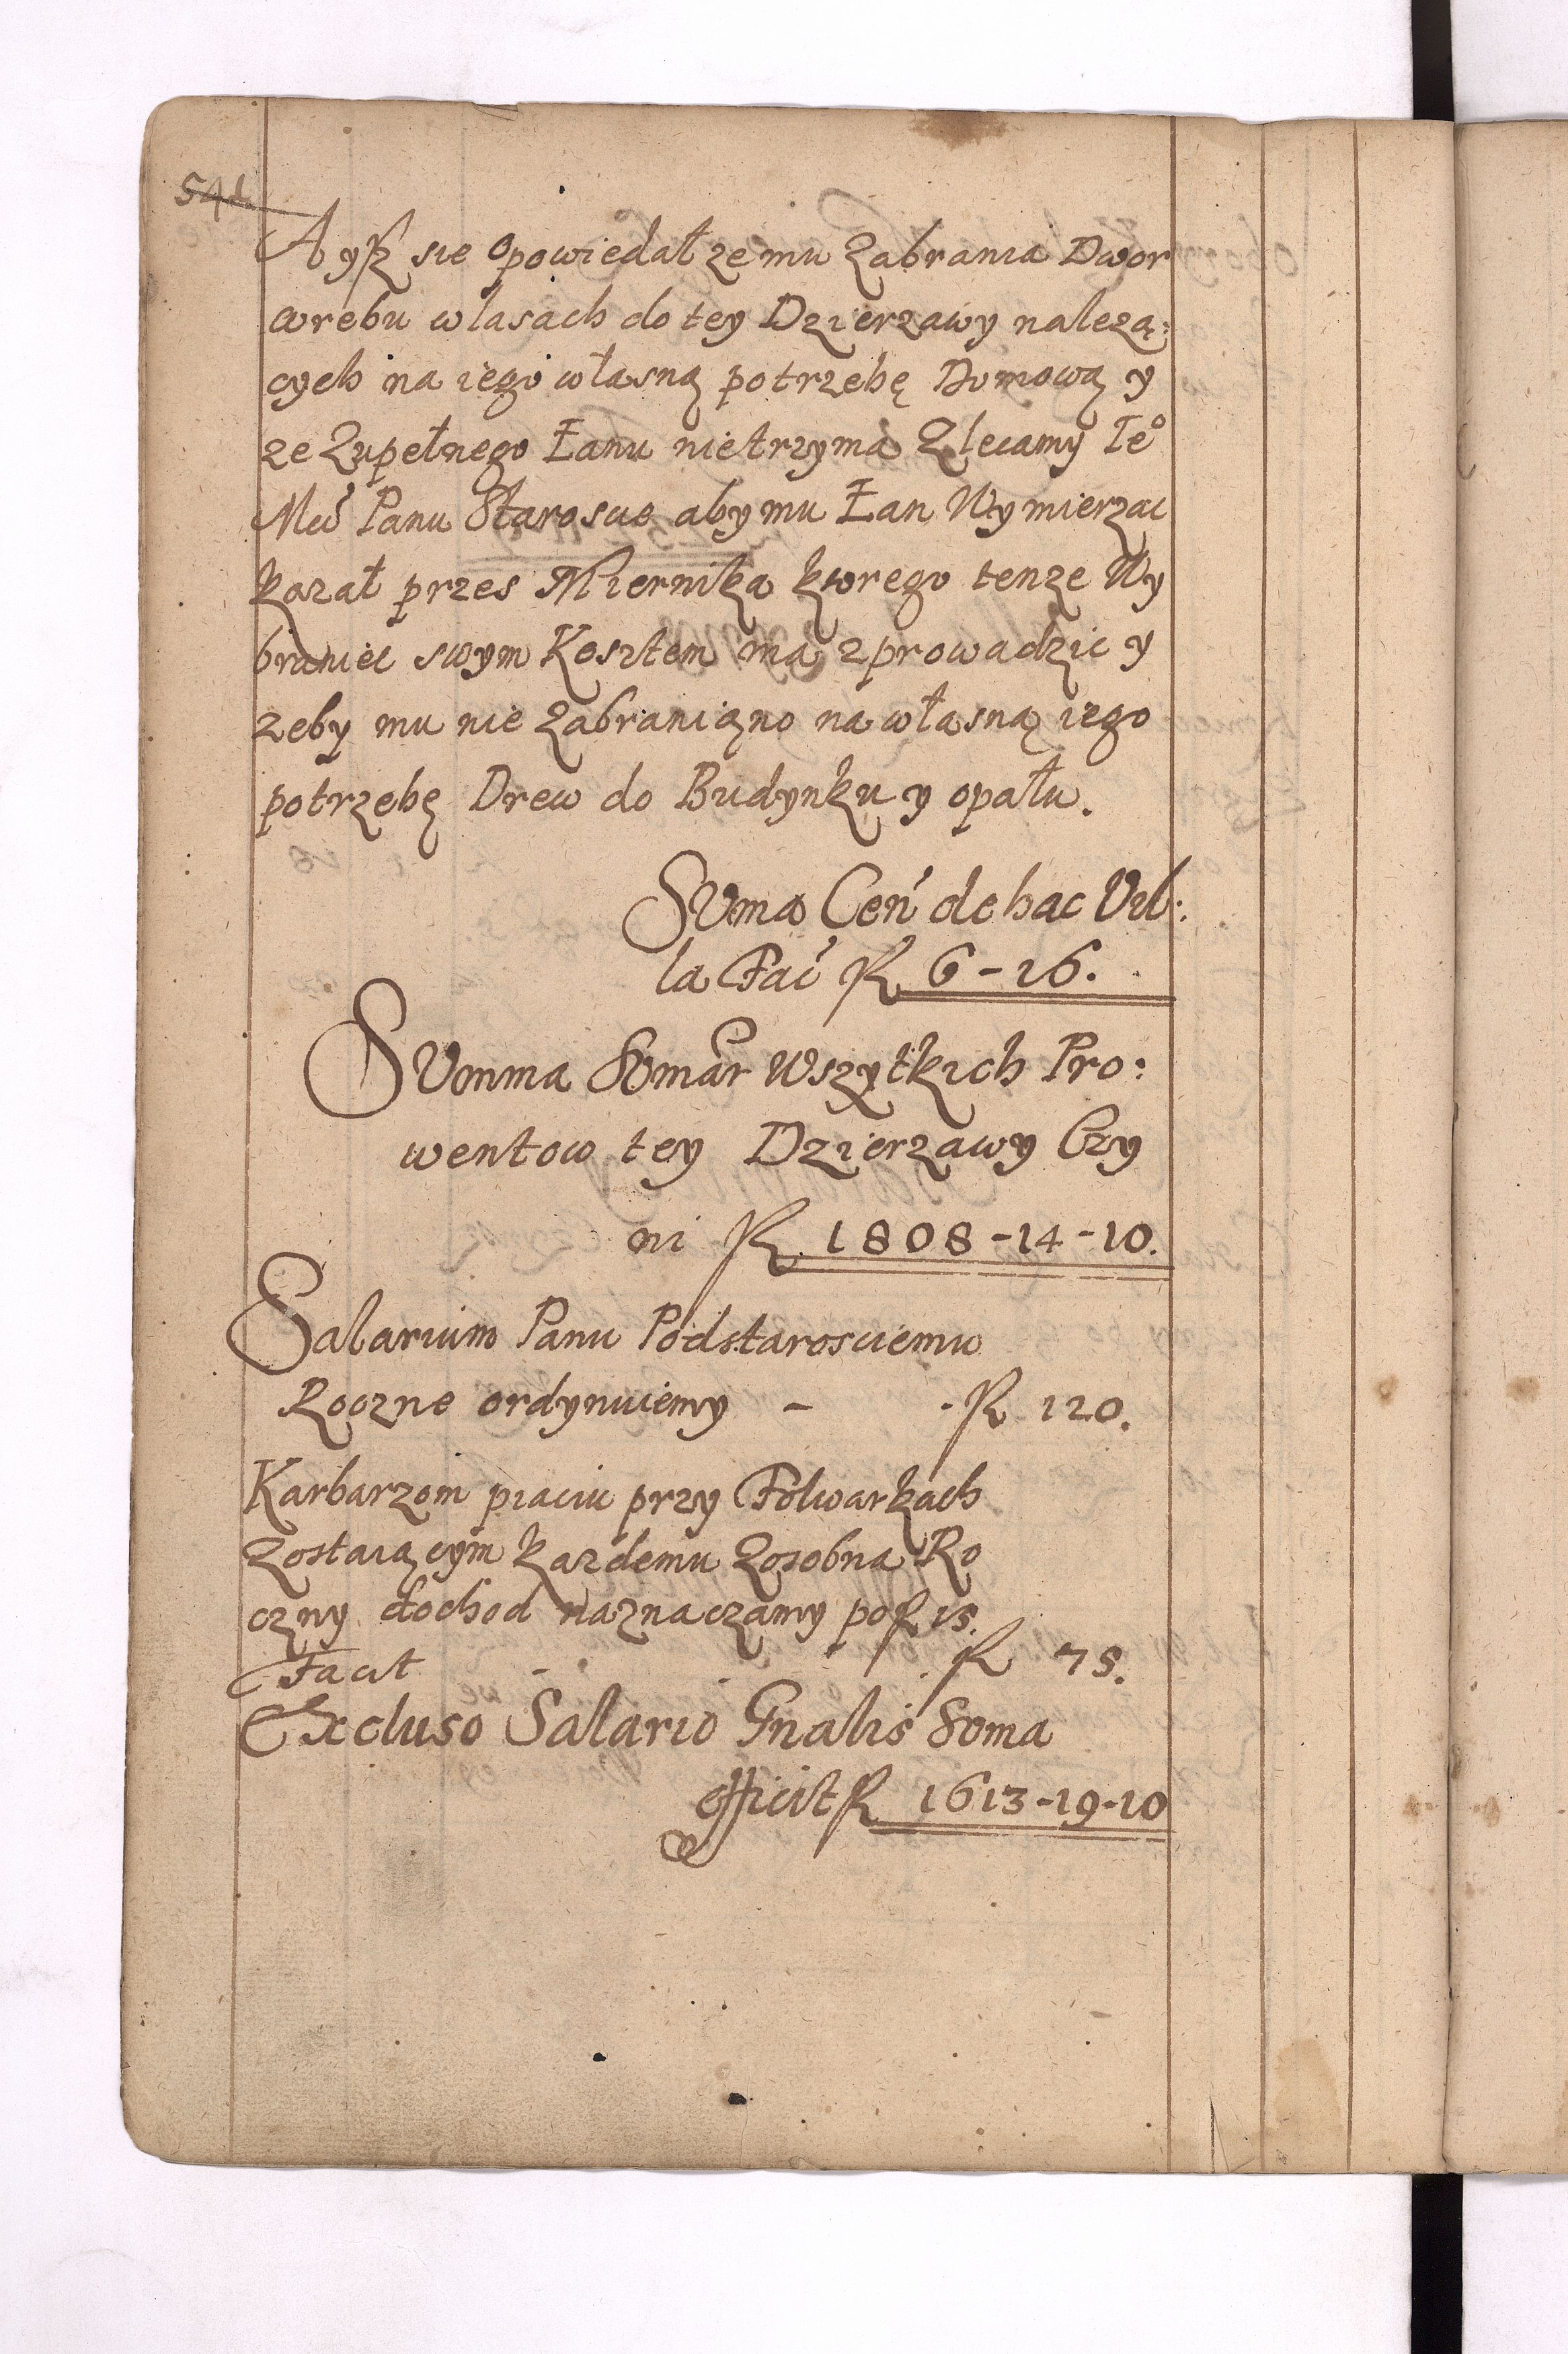 541.
A yß sie opowiedał ze mu Zabrania Dwor
wrebu w lasach do tey Dzierzawy nalezą:
cych na iego własną potrzebę Domową y
ze Zupełnego Łanu nietrzyma Zlecamy Ieº
Mći Panu Staroscie aby mu Łan Wymierzac
kazał przes Miernika ktorego tenze Wy
braniec swym Kosztem ma zprowadzic y
zeby mu nie Zabraniąno na własną iego
potrzebę Drew do Budynku y opału.
SVma Cen̄ de hac Vil:
la Fać R 6-16.
SVmma Somar Wszytkich Pro:
wentow tey Dzierzawy Czy
ni R 1808-14-10.
Salarium Panu Podstarosciemu
Roczne ordynuiemy - R 120.
Karbarzom piąciu przy Folwarkach
Zostaiącym kazdemu Zosobna Ro
czny dochod naznaczamy po R 15.
Facit - R 75.
Excluso Salario Gnalis Soma
efficit R 1613-19-10